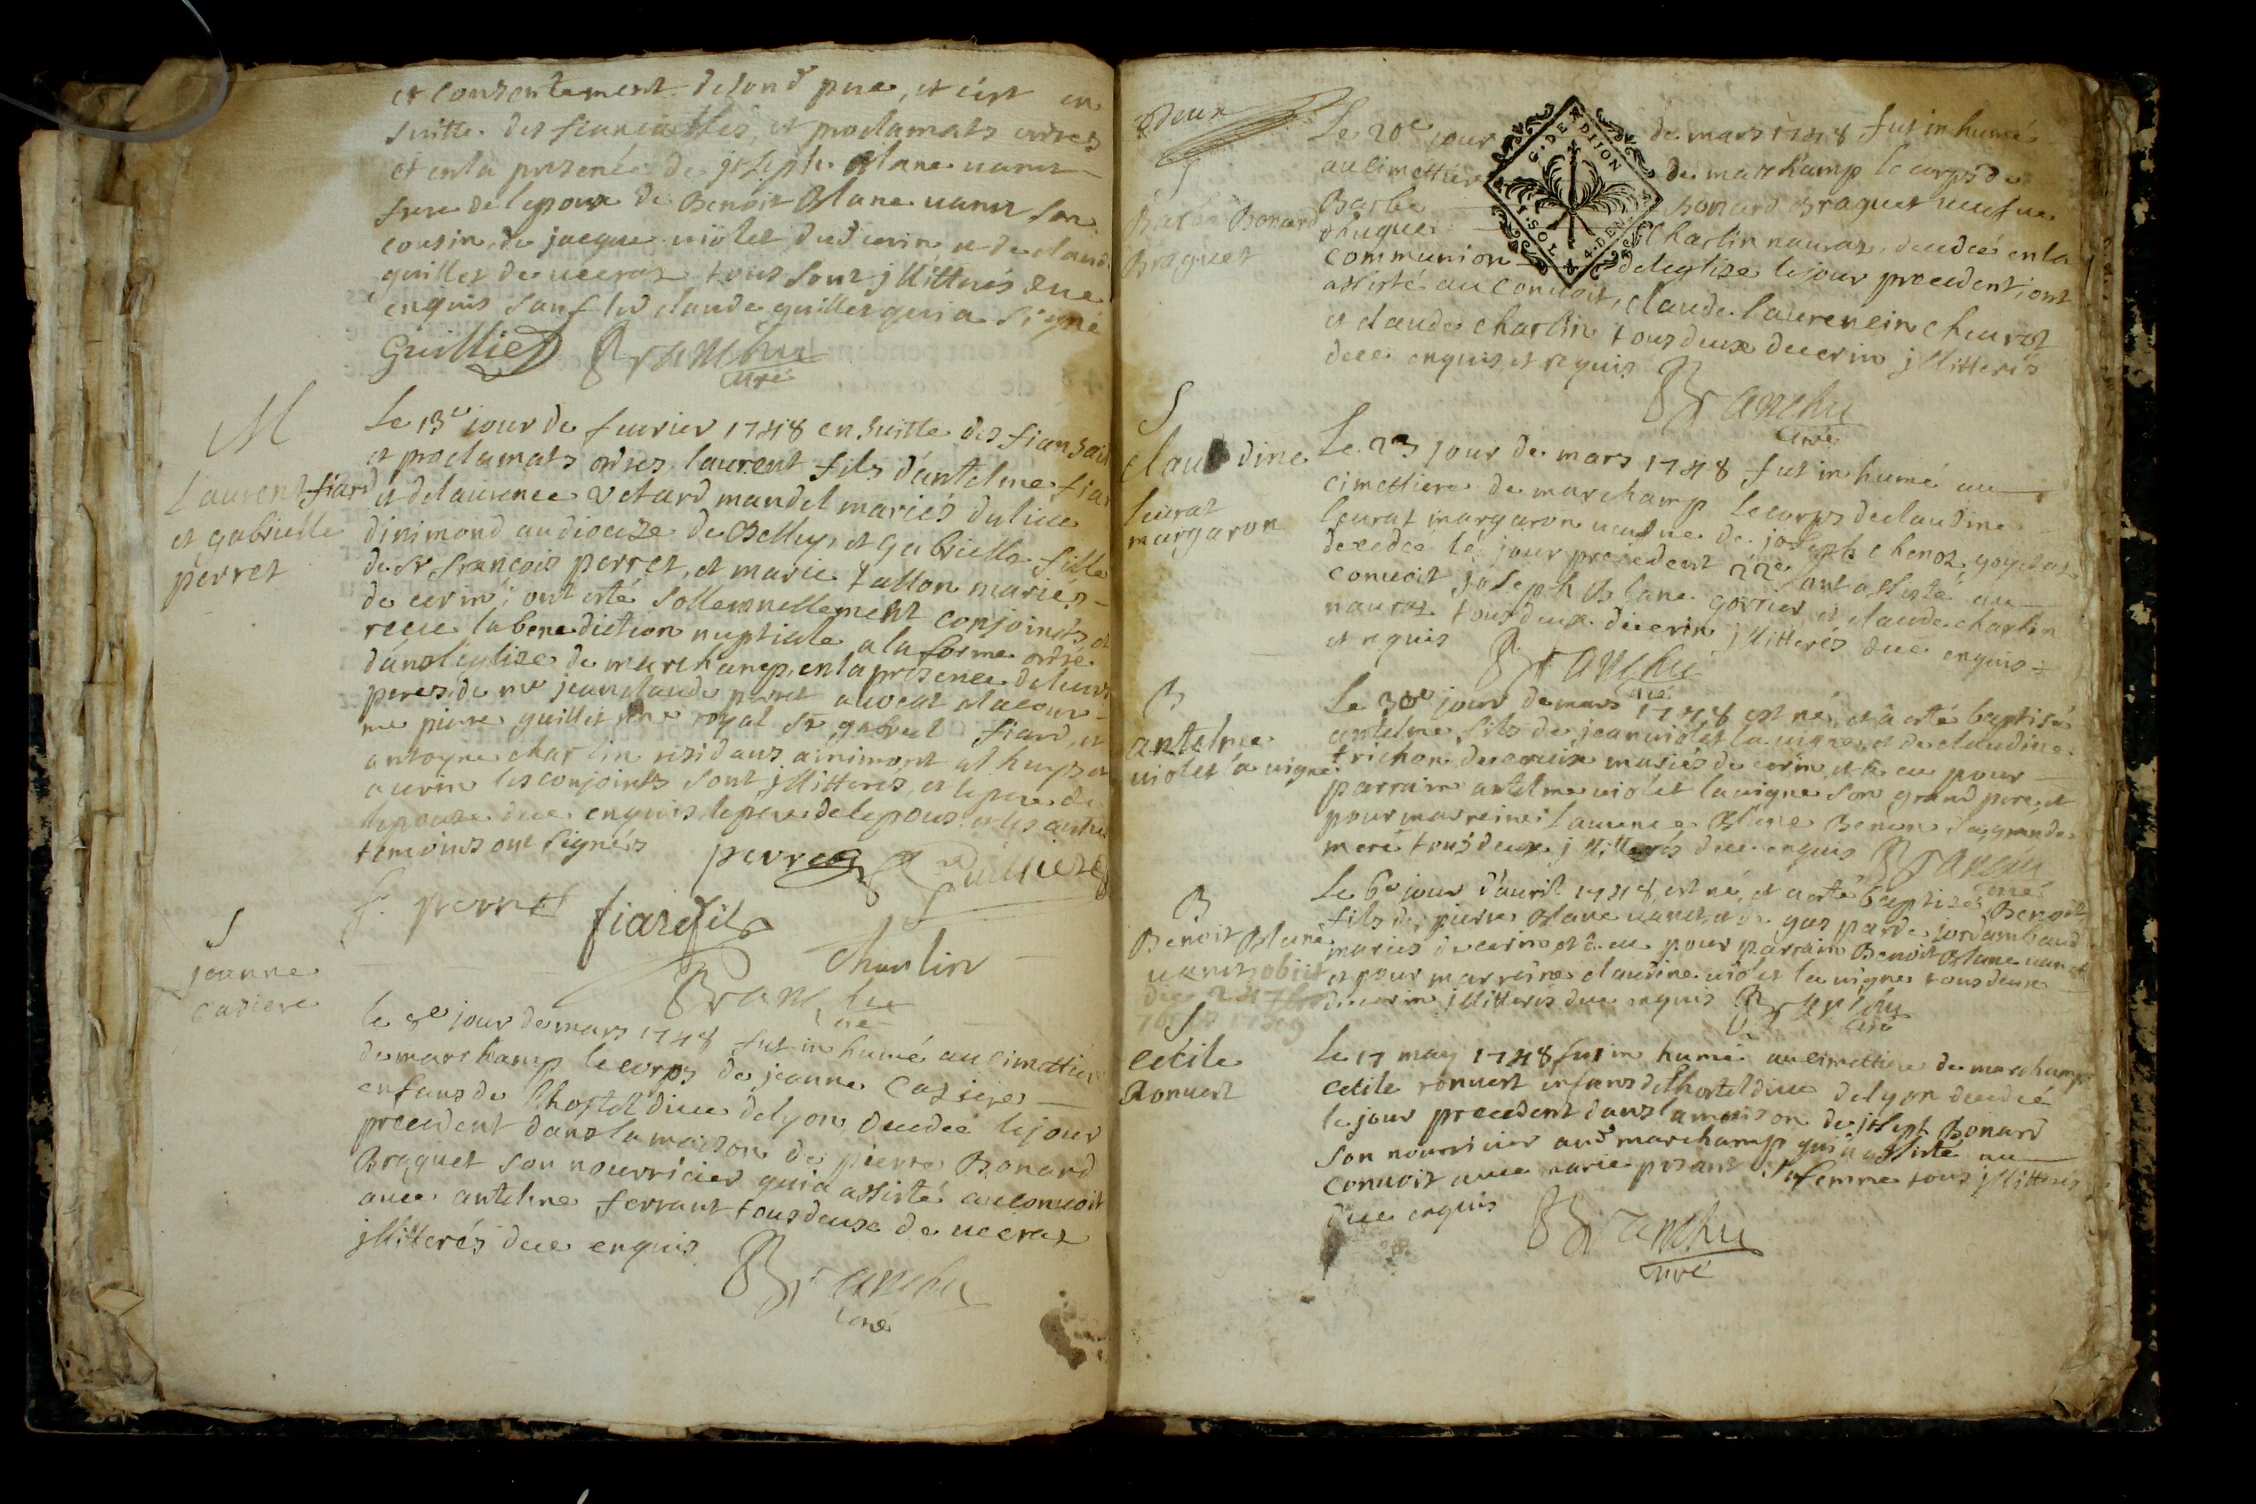 et consentement de son d pere, et c'est en
suitte des fiancialles, et proclamats ordres
et en la presence de joseph Blanc vanet
frere de lepoux de Benoit Blanc vanet son
cousin, de jacque violet du d cerin, et de claude
guillet de veeraz tous sont jllitterés due
enquis sauf led claude guillet qui a signé
Guilliet Branchu
curé
M
Laurent fiard
et gabrielle
perret
Le 13e jour de fevrier 1748 en suitte des fiansail
et proclamats ordres laurent fils d'antelme fiar
et de laurence vetard mandel mariés du lieu
dinimond au dioceze de Belley, et gabrielle fille
de Sr françois perret, et marie tallon mariés
de cerin; ont esté sollemnellement conjoints, et
recue la benediction nuptiale a la forme ordre
dans leglise de marchamp, en la presence de leurs
peres, de me jean claude perret avocat a la cour
me pierre guillet royal Sr gabriel fiard, et
antoyne charlin residans a inimont et
a cerin les conjoints sont jllitterés, et le pere de
lepouze due enquis le pere de lepoux et les autres
temoins ont signés perret Guilliet
f. perret fiard fils
charlin
Branchu
curé
S
jeanne
caziere
le 8e jour de mars 1748 fut in humé au cimettier
de marchamp le corps de jeanne caziere
enfans de lhostel dieu de lyon decedée le jour
precedent dans la maison de pierre Bonard
Braguet son nourricier qui a assisté au convoit
avec antelme ferrant tous deux de veeraz
jllitterés due enquis Branchu
curé
deux
S
Barbe Bonard
Braguet
Le 20e jour de mars 1748 fut in humé
au cimettier de marchamp le corps de
Barbe Bonard Braguet veufve
d'hugue Charlin nauraz decedée en la
communion de leglize le jour precedent, ont
assisté au convoit, claude laurencin cheuraz
et claude charlin tous deux de cerin jllitterés
due enquis, et requis Branchu
curé
G. DE DITION
1. SOL 4. DEN.
S
claudine
leurat
margaron
Le 23 jour de mars 1748 fut in humé au
cimettiere de marchamp le corps de claudine
leurat margaron veufve de joseph chenoz goytaz
decedée le jour precedent 22e, ont assisté au
convoit joseph Blanc gorrier, et claude charlin
nauraz tous deux de cerin jllitterés due enquis
et requis Branchu
curé
B
antelme
violet la vigne
Le 30e jour de mars 1748 est né, et a esté baptisé
antelme fils de jean violet la vigne, et de claudine
trichon decroix mariés de cerin, et a eu pour
parrain antelme violet la vigne son grand pere, et
pour marreine Laurence Blanc Benon sa grande
mere tous deux jllitterés due enquis Branchu
curé
B
Benoit Blanc
vanet, obiit
die 24 7bre
1749
Le 6e jour d'avril 1748, est né, et a esté baptisé Benoit
fils de pierre Blanc vanet, et de gasparde jordambaud
mariés de cerin, et a eu pour parrain Benoit Blanc vanet
et pour marreine claudine violet la vigne tous deux
de cerin jllitterés due enquis Branchu
curé
S
Cecile
Ronvert
Le 17 may 1748 fut in humé au cimettiere de marchamp
cecile ronvert enfans de lhostel dieu de lyon decedée
le jour precedent dans la maison de joseph Bonard
son nourricier aud marchamp qui a assisté au
convoit avec marie prost sa femme tous jllitterés
due enquis Branchu
curé